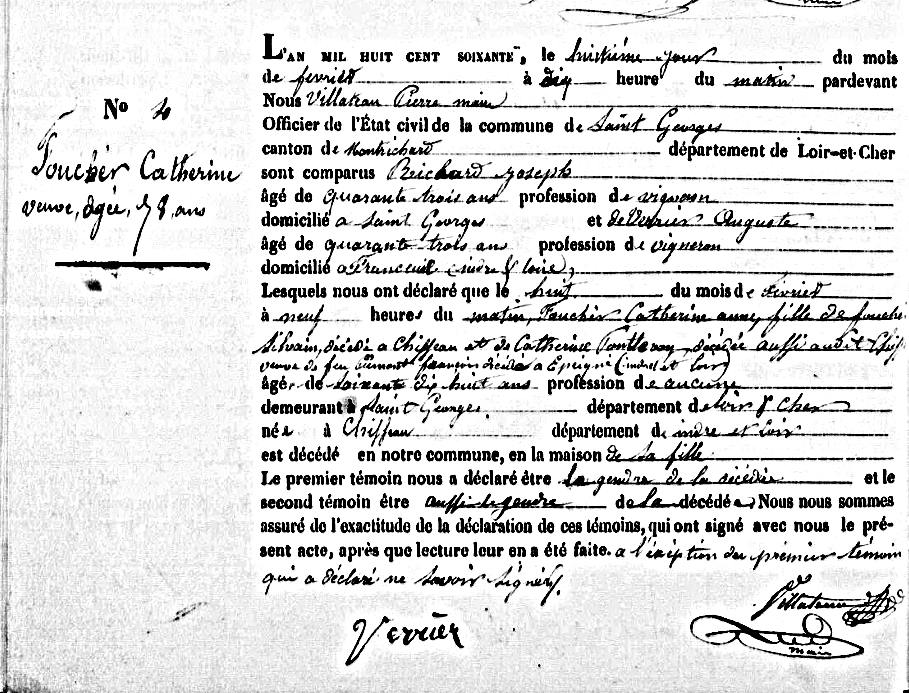 L'AN MIL HUIT CENT SOIXANTE, le huitième jour du mois
de fevrier à dix heure du matin pardevant
Nous Villateau Pierre maire
Officier de l'État civil de la commune de Saint Georges
canton de Montrichard département de Loir-et-Cher
sont comparus Reichard Joseph
âgé de quarante trois ans profession de vigneron
domicilié a Saint Georges et de Verrier Auguste
âgé de quarante trois ans profession de vigneron
domicilié a Francueil (indre & loire)
Lesquels nous ont déclaré que le huit du mois de fevrier
à neuf heures du matin, Foucher Catherine anne, fille de fouche
Silvain, décédé a Chisseau et de Catherine Pontlevoy, décédée aussi audit Chiss
veuve de feu françois décédé a Epeigné (indre et loir)
âgée de soixante dix huit ans profession de aucune
demeurant à Saint Georges département de loir & Cher
née à Chisseau département de indre et loir
est décédé en notre commune, en la maison de sa fille
Le premier témoin nous a déclaré être le gendre de la décédée et le
second témoin être aussi le gendre de la décédée, Nous nous sommes
assuré de l'exactitude de la déclaration de ces témoins, qui ont signé avec nous le pré-
sent acte, après que lecture leur en a été faite. a l'exeption du premier témoin
qui a déclaré ne savoir signer.
No 4
Foucher Catherine
veuve, agée, 78, ans
Verrier
Villateau
maire